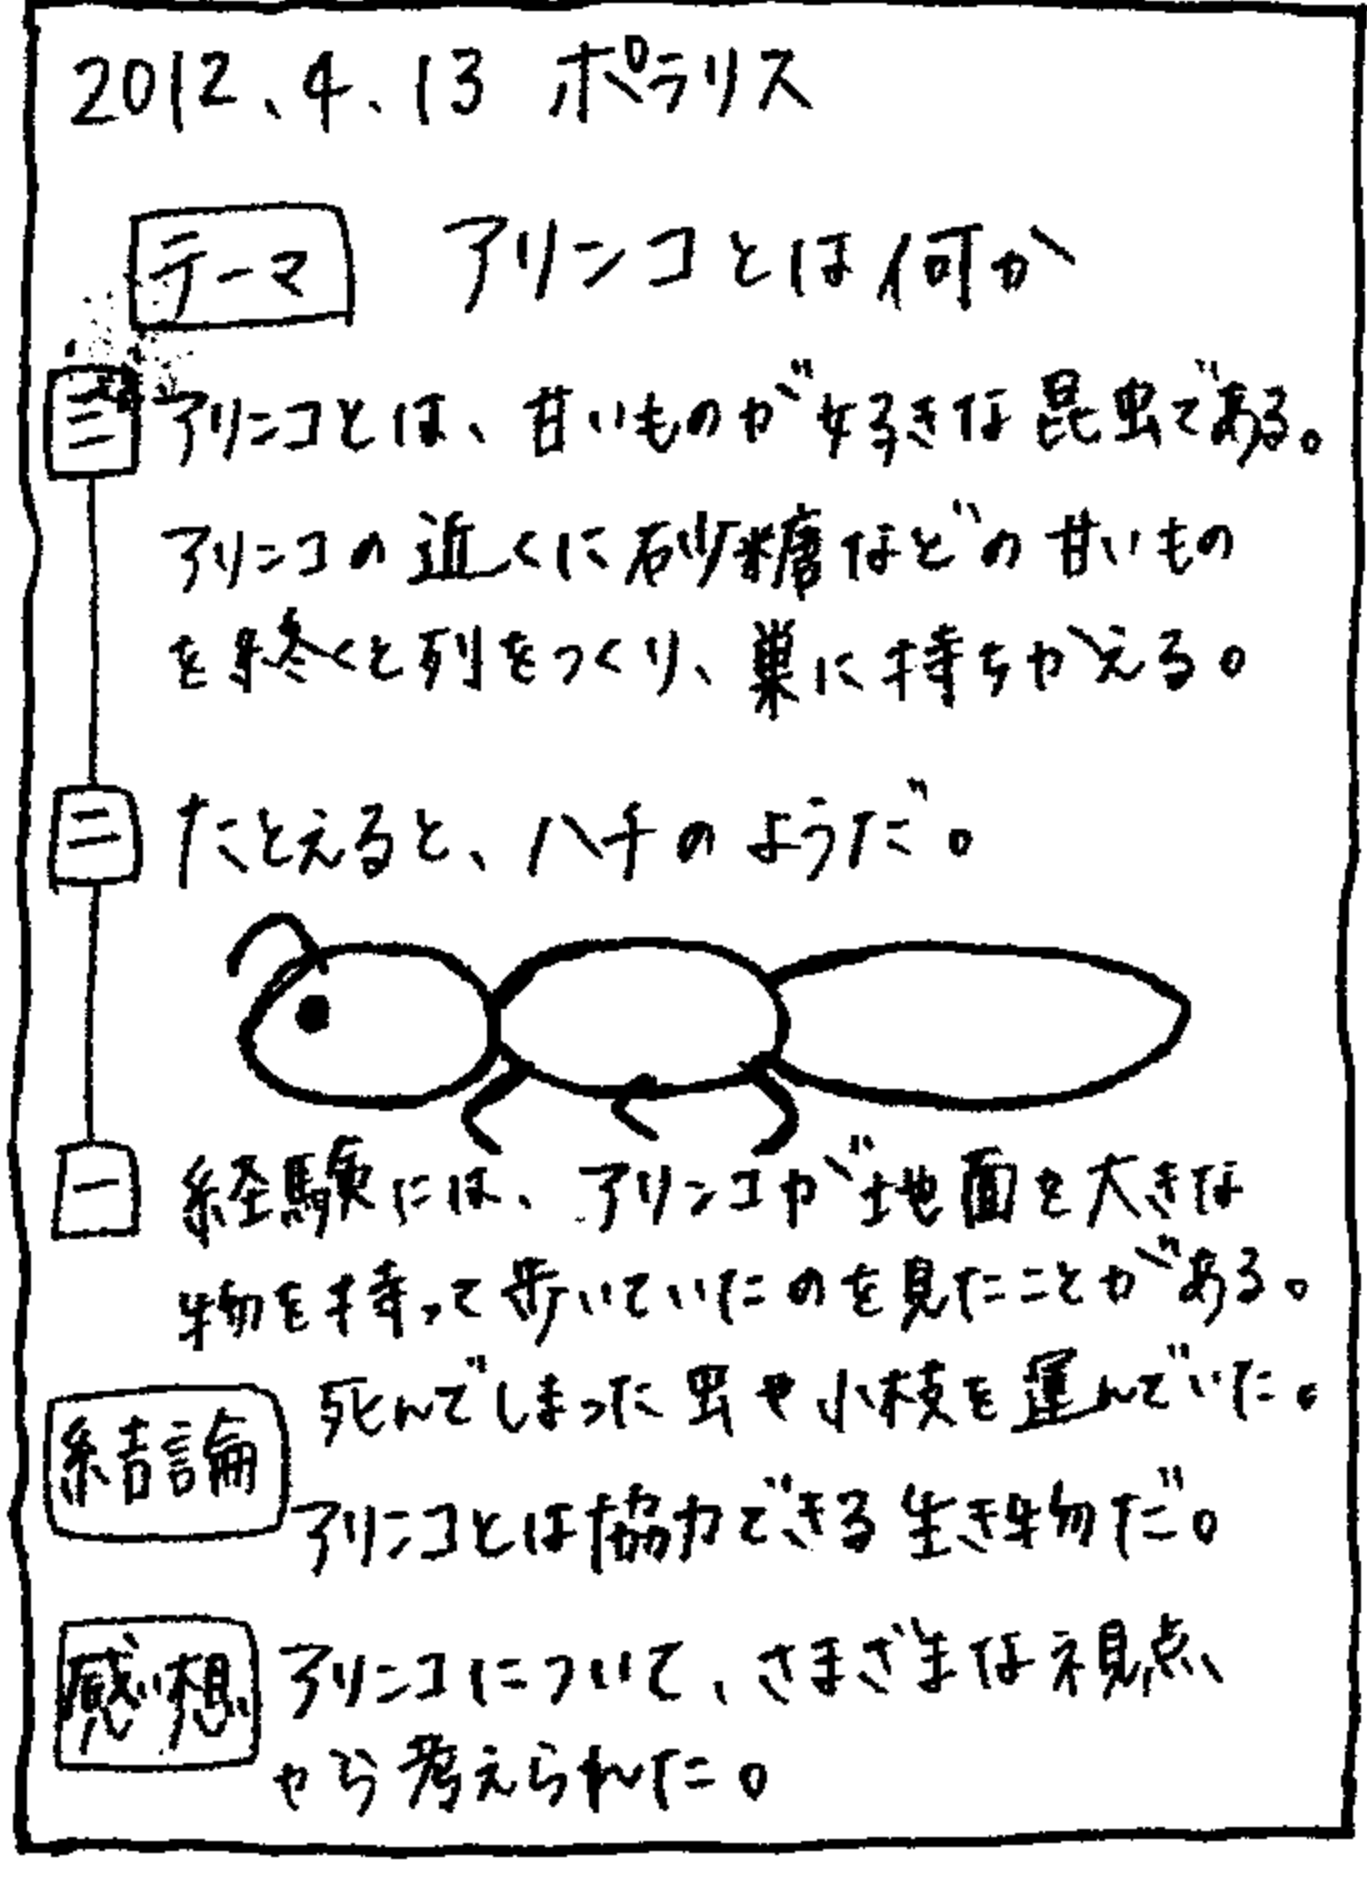 2012.4.13 ポラリス
テーマ アリンコとは何か
三 アリンコとは、甘いものが好きな昆虫である。
アリンコの近くに砂糖などの甘いもの
をおくと列をつくり、巣に持ちかえる。
二 たとえると、ハチのようだ。
一 経験には、アリンコが地面を大きな
物を持って歩いていたのを見たことがある。
死んでしまった虫や小枝を運んでいた。
結論 アリンコとは協力できる生き物だ。
感想 アリンコについて、さまざまな視点
から考えられた。